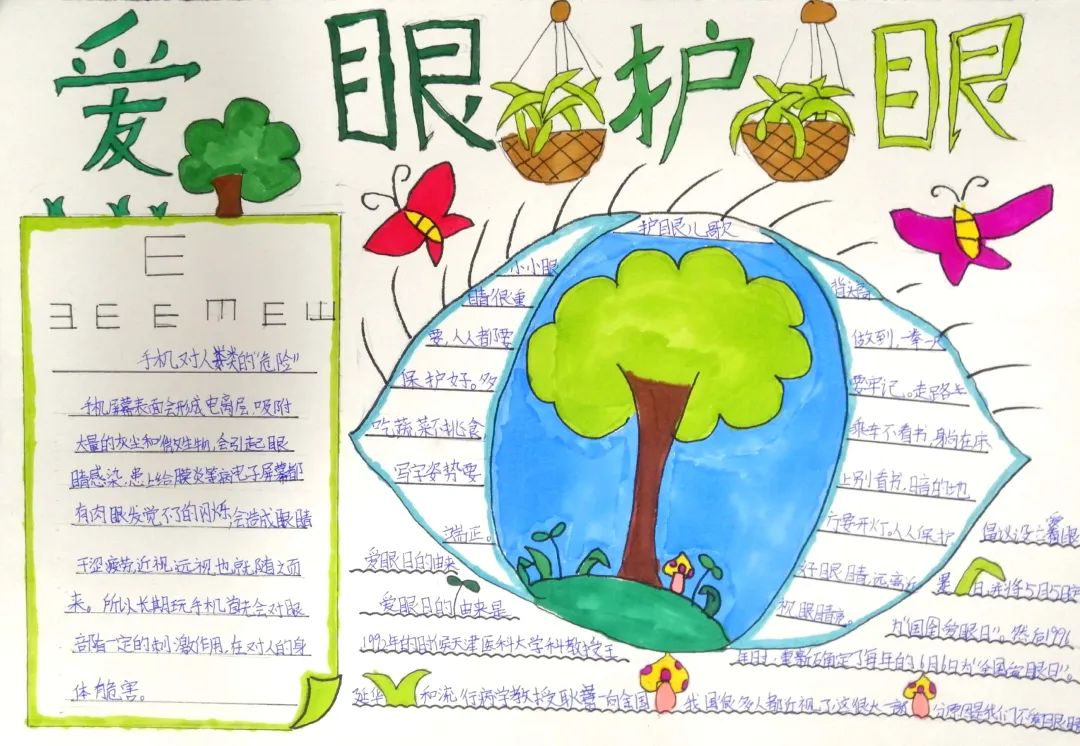 爱眼护眼
E
ヨ E E m E 山
手机对人类的"危险"
手机屏幕表面会形成电离层,吸附
大量的灰尘和微生物,会引起眼
睛感染,患上结膜炎等病电子屏幕都
有肉眼发觉不了的闪烁,会造成眼睛
干涩疲劳近视,远视也就随之而
来。所以长期玩手机首先会对眼
部有一定的刺激作用,在对人的身
体有危害。
护眼儿歌
小小眼
睛很重
要,人人都要
保护好。多
吃蔬菜不挑食
写字姿势要
端正。
做到,一拳一
要牢记。走路
乘车不看书,躺在床
上别看书,暗的地
方要开灯。人人保护
好眼睛,远离近
视眼睛亮。
爱眼日的由来
爱眼日的由来是
1992年的时候天津医科大学科教授王
延华和流行病学教授耿
向全国
倡议设立爱眼
日我将5月5日
为"国全爱眼日"。然后1996
年日,重新确定了每年的6月6日为"全国爱眼日"。
我国很多人都近视了,这很大一部
分原因是我们不爱眼